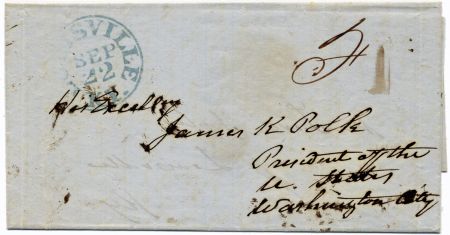 SVILLE
SEP
22
His Excellcy
James K Polk
President of the
U. States
Washington City